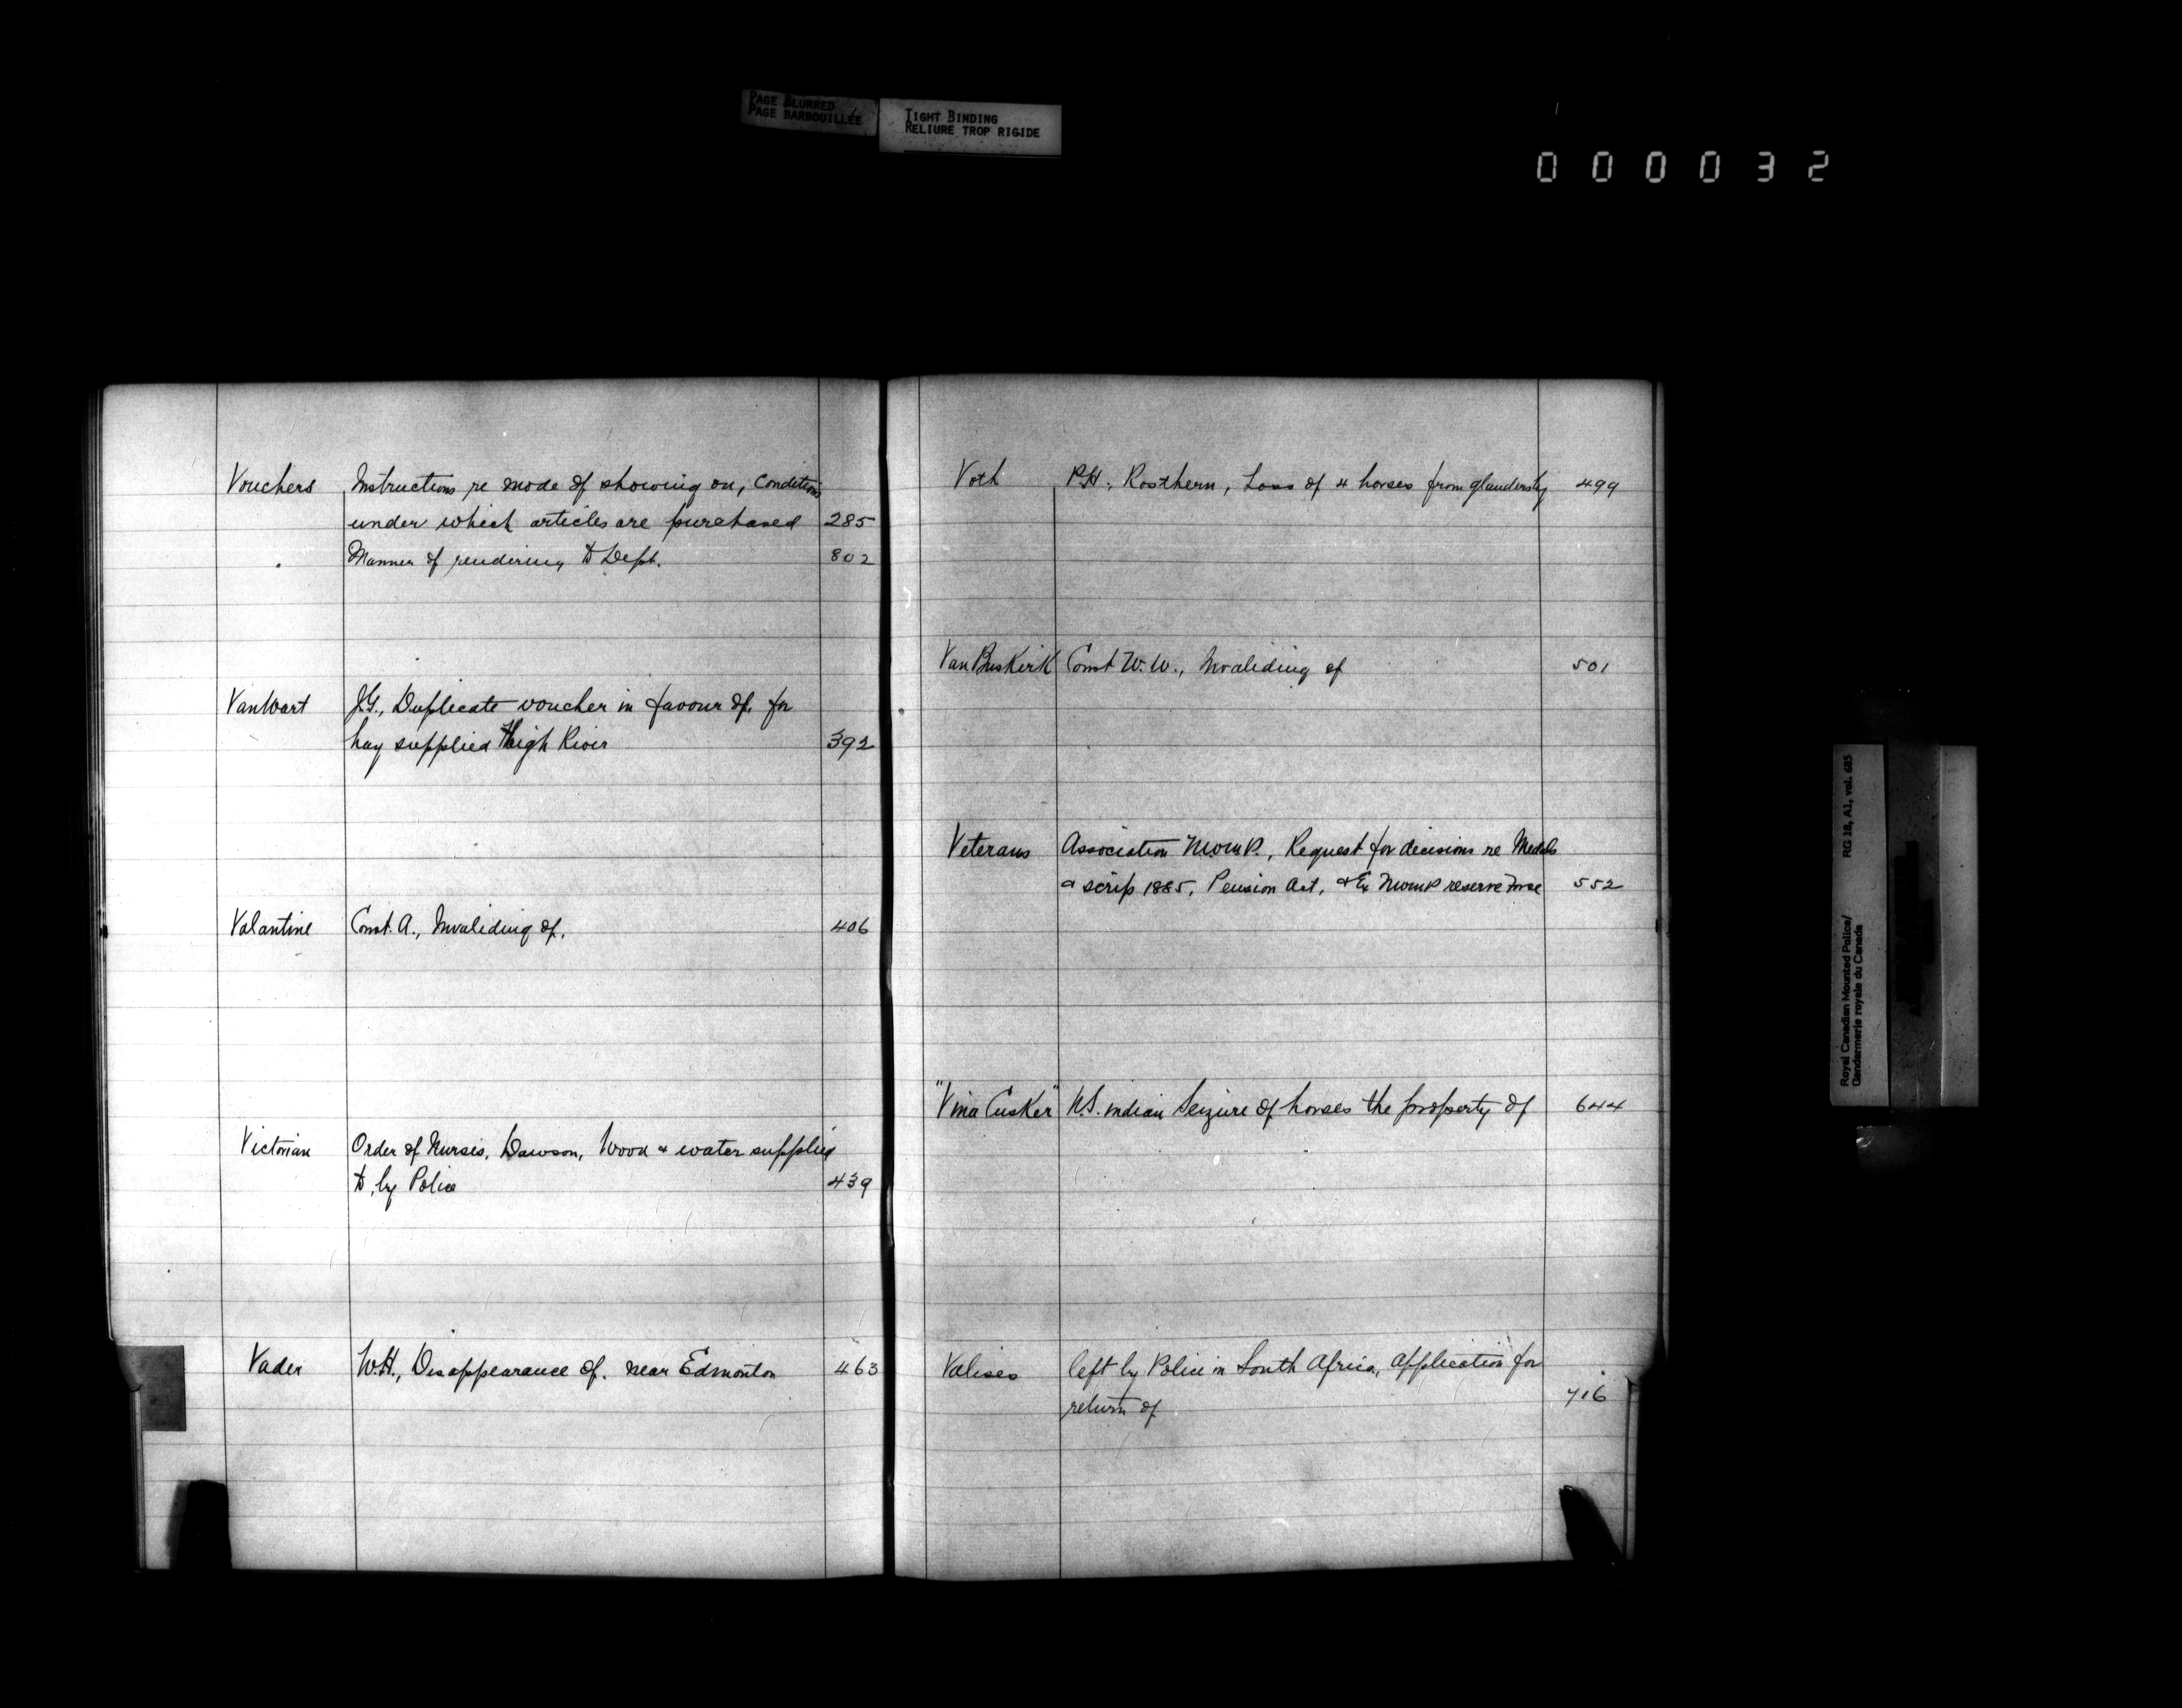 PAGE BLURRED
PAGE BARBOUILLÉE
TIGHT BINDING
RELIURE TROP RIGIDE
000032
Vouchers Instructions re mode of showing on, Conditions
under which articles are purchased 285
" Manner of rendering to Dept. 802
VanWart J.G., Duplicate voucher in favour of, for
hay supplied High River 392
Valantine Const. A., Invaliding of. 406
Victorian Order of Nurses, Dawson, Wood & water supplied
to, by Police 439
Vader W.H., Disappearance of. near Edmonton 463
Voth P.H., Rosthern, Loss of 4 horses from glanders by 499
Van Buskirk Const W.W., Invaliding of 501
Veterans Association NWMP., Request for decisions re Medals
& scrip 1885, Pension Act, & Ex NWMP reserve Force 552
"Vina Cusker" U.S. indian Seizure of horses the property of 644
Valises left by Police in South Africa, application for
return of 716
Royal Canadian Mounted Police/ RG 18, A1, vol. 605
Gendarmerie royale du Canada